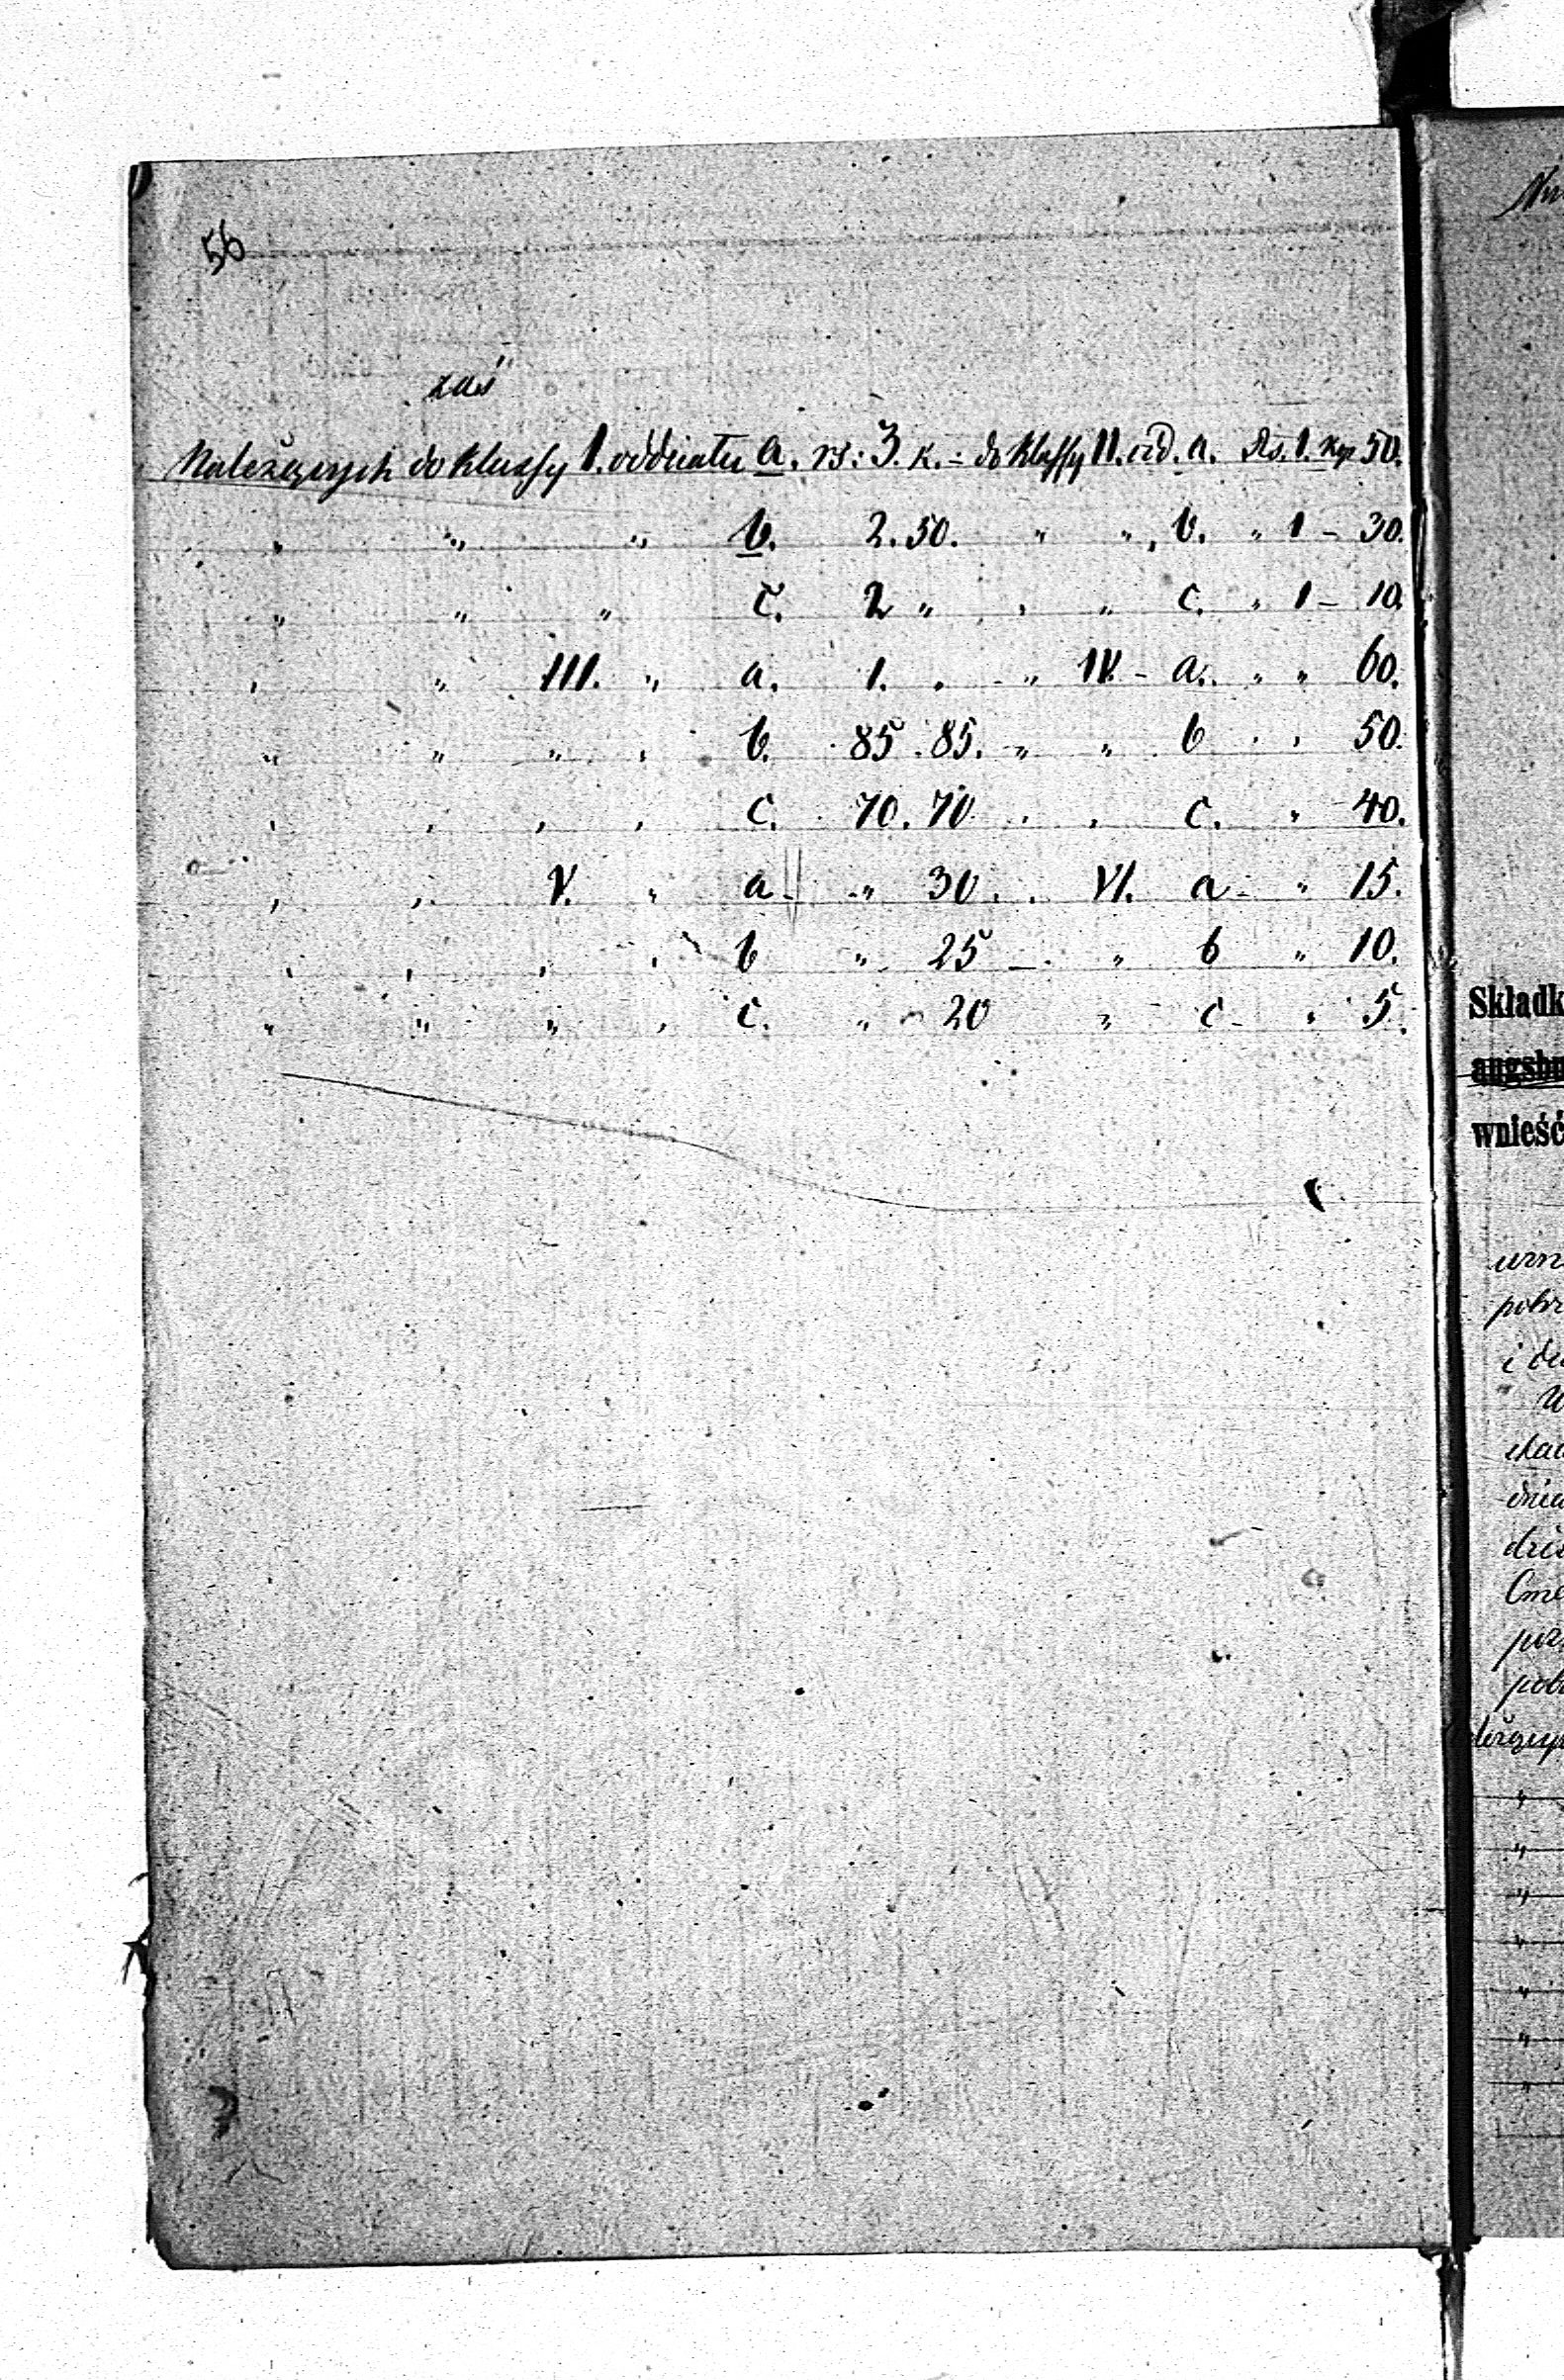 56
zaś
Należących do klassy I. oddziału a. rs: 3. k. - do klassy II. od. a. Rs. 1. kop 50.
" " " b. 2. 50. " " b. " 1 - 30.
" " " c. 2 " " " c. " 1 - 10.
" " III. " a. 1. . - " IV. - a. " " 60.
" " " " b. 85. 85. - " " b " " 50.
" " " " c. 70. 70. " " c. " 40.
" " V. " a - " 30. " VI. a - " 15.
" " " " b " 25 - " b " 10.
" " " " c. " - 20 " c - " 5.
Nr
Składk
augsbu
wnieść
pobr
i du
dnia